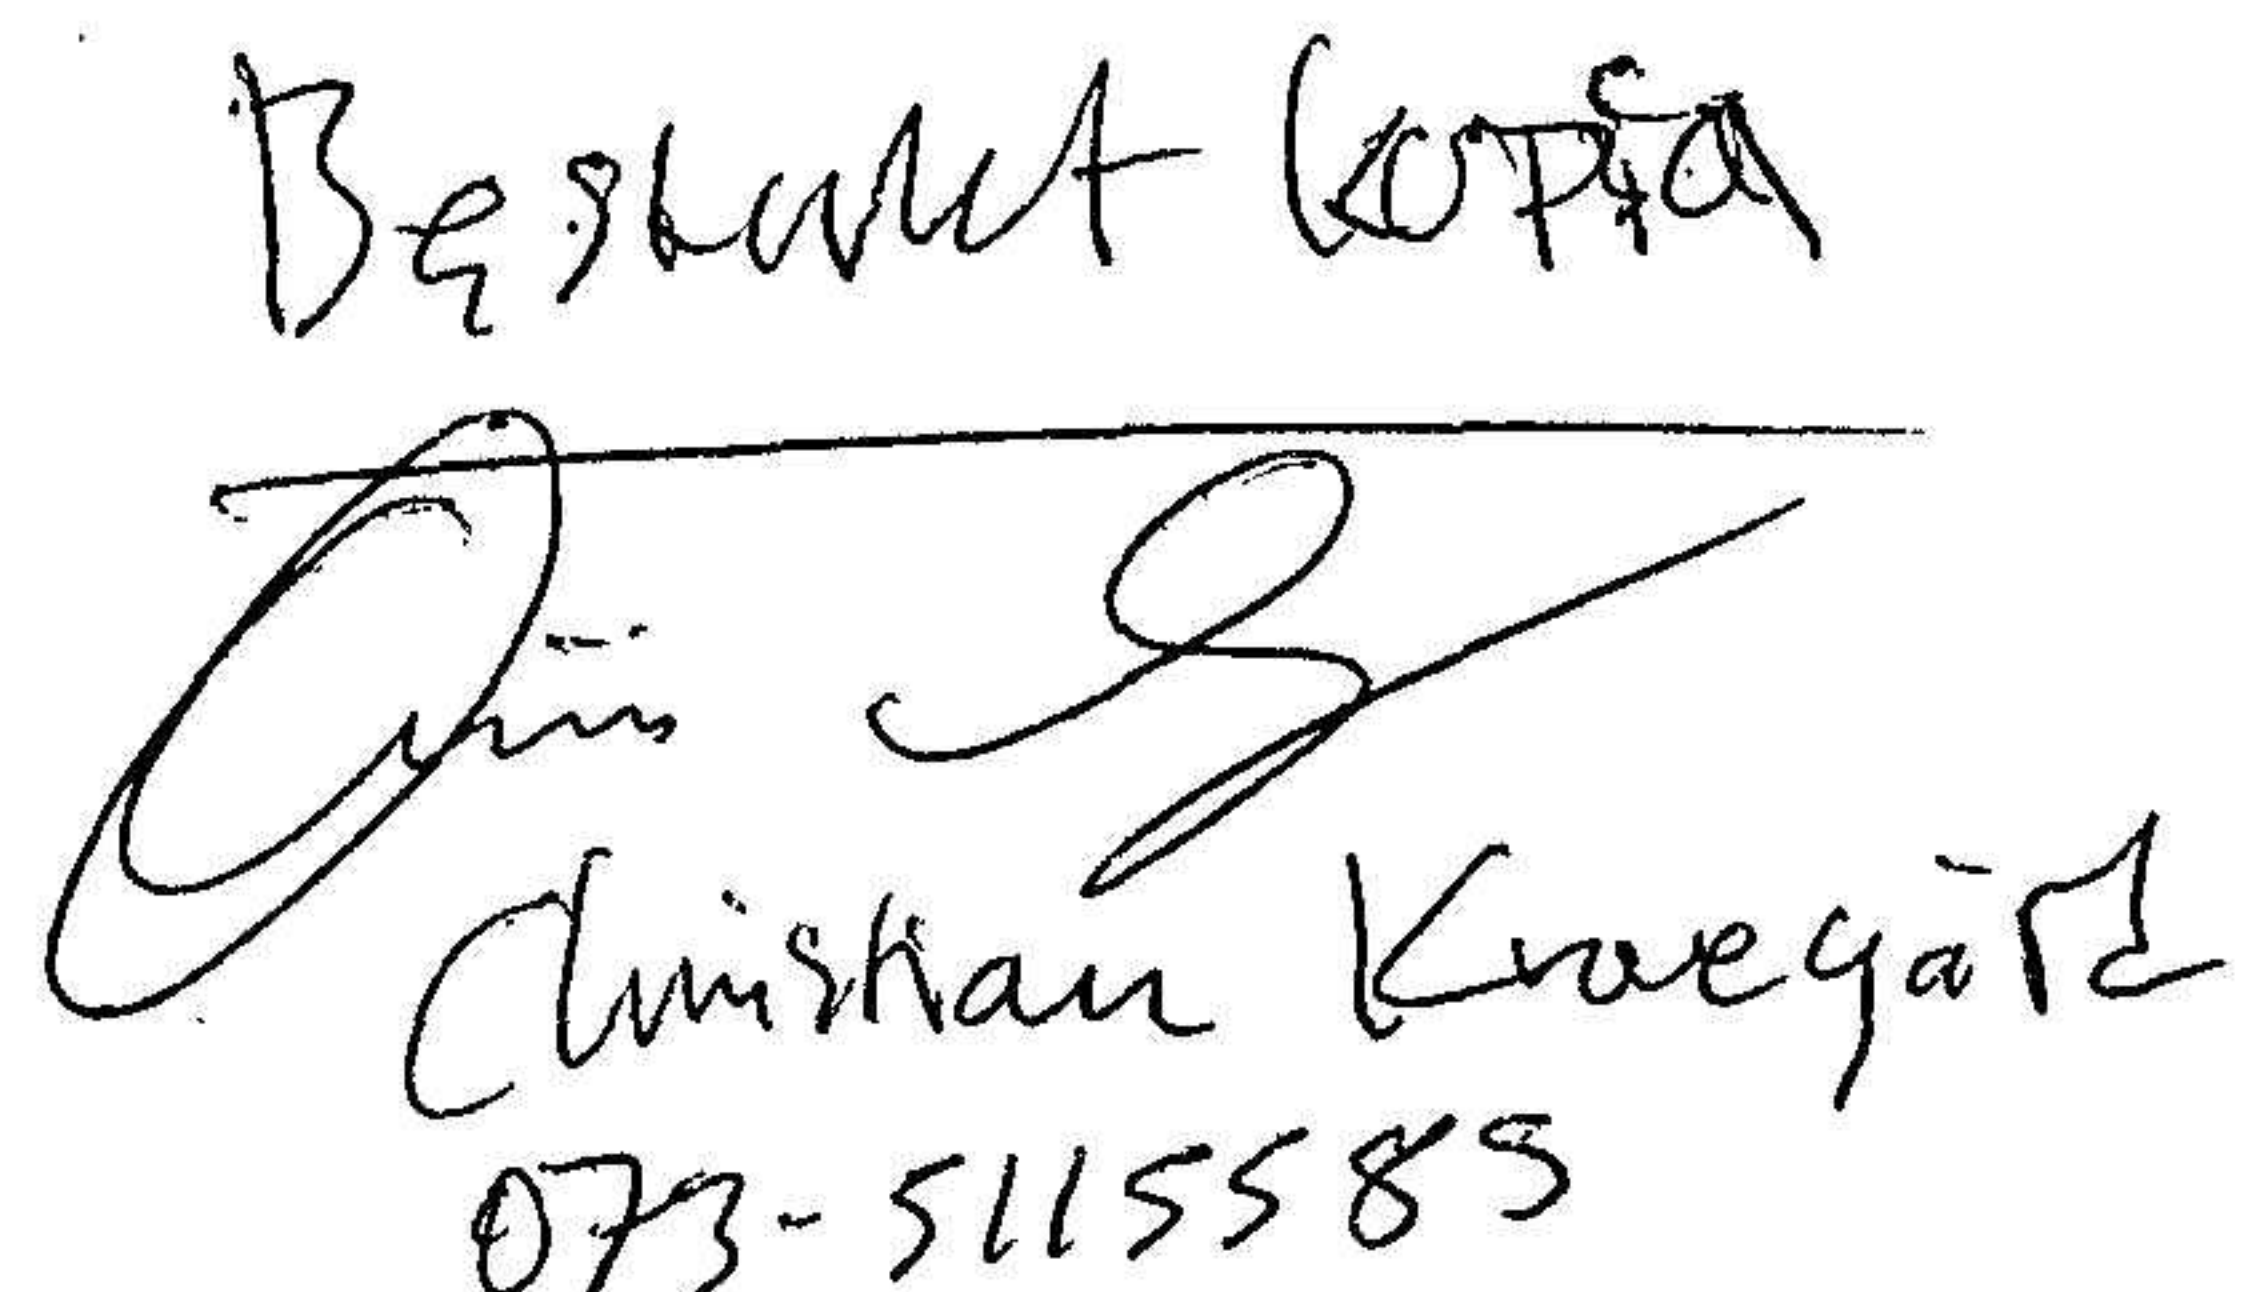 Bestyrket kopia
Christian Kroegård
073-5115585